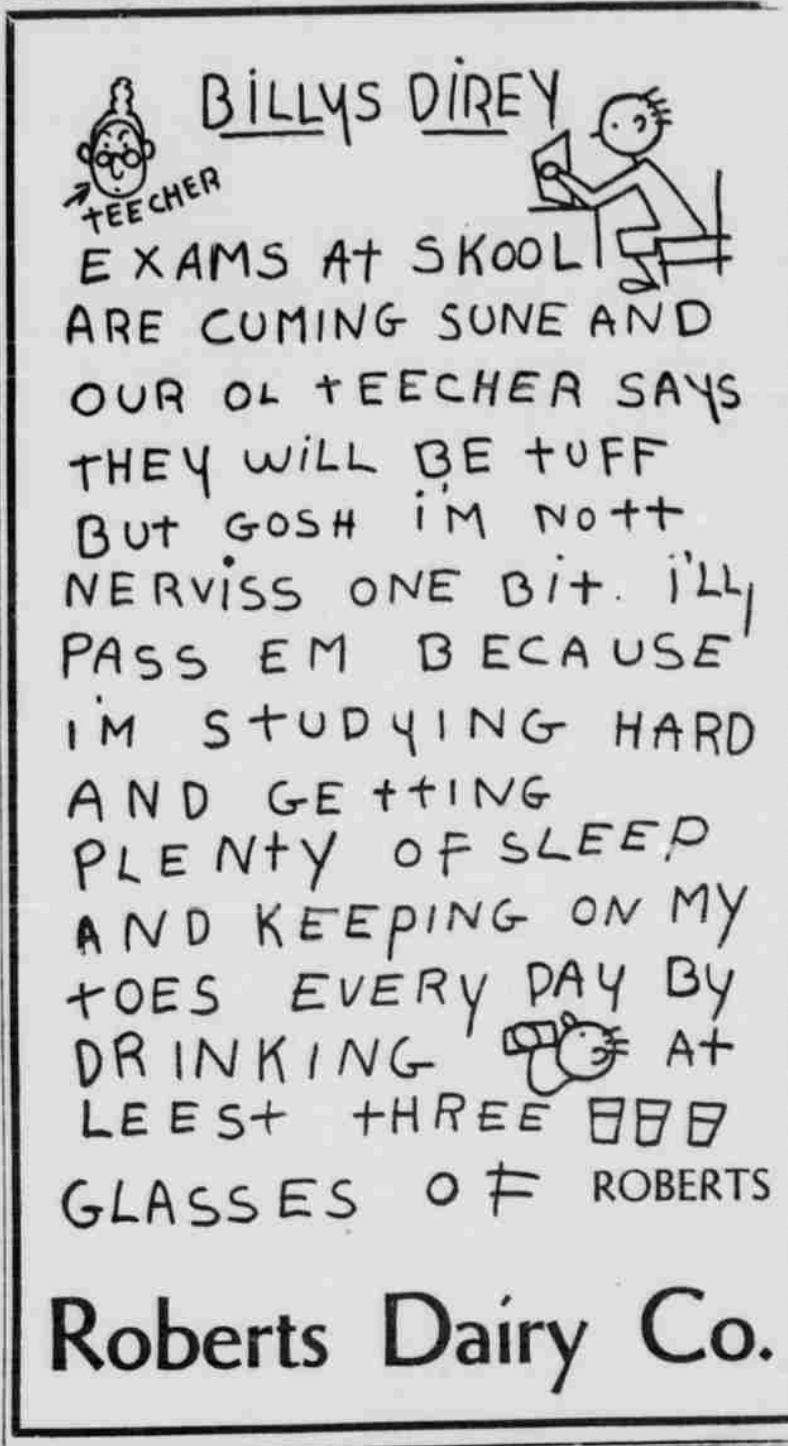 BiLLYS DiREY
TEECHER
EXAMS At SKOOL
ARE CUMING SUNE AND
OUR OL tEECHER SAYS
tHEY WiLL BE tUFF
BUt GOSH i'M NOtt
NERViSS ONE Bit. i'LL
PASS EM BECAUSE
I'M StUDYING HARD
AND GEttING
PLENtY OF SLEEP
AND KEEPING ON MY
tOES EVERY DAY BY
DRINKING At
LEESt tHREE
GLASSES OF ROBERTS
Roberts Dairy Co.